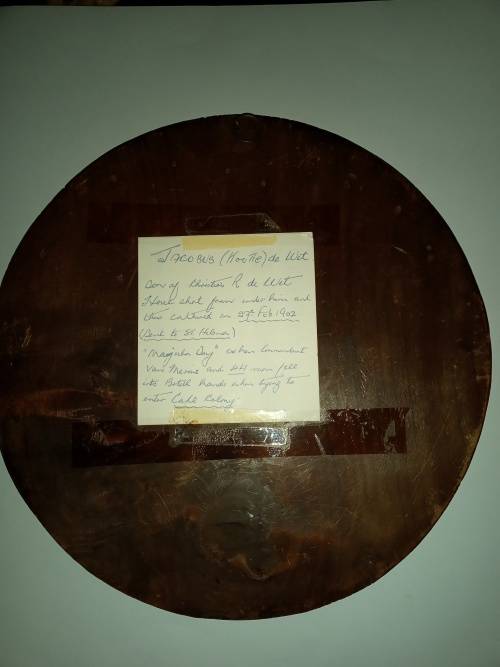 JACOBUS (Kootie) de Wet
Son of Christian R de Wet
Horse shot from under him and
thus captured on 27th Feb 1902
(Sent to St Helena)
"Majuba Day" when Commandant
Van Merwe and 44 men fell
into British hands when trying to
enter Cape Colony